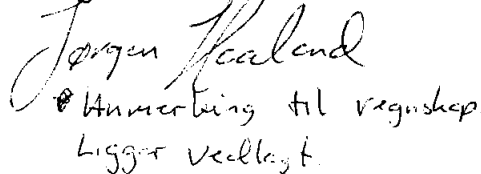 Jørgen Haaland
* Anmerkning til regnskap
Ligger vedlagt.